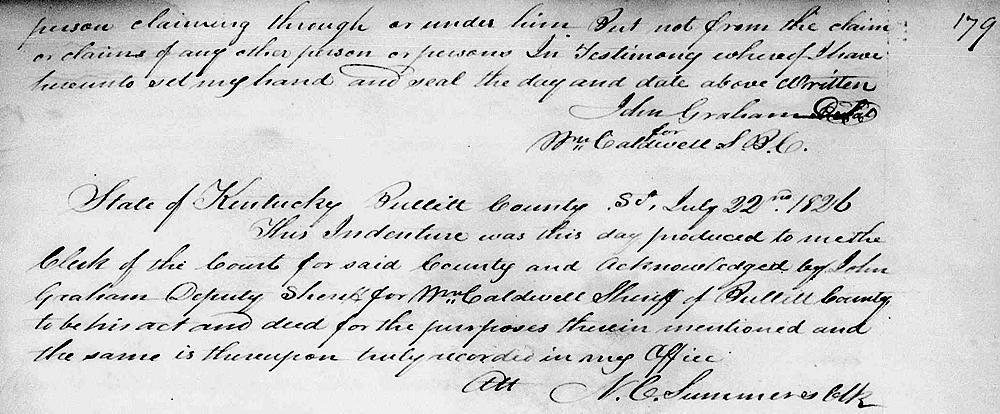 179
person claiming through or under him But not from the claim
or claims of any other person or persons In Testimony whereof I have
hereunto set my hand and seal the day and date above Written
John Graham Seal
for
Wm Caldwell S.B.C.
State of Kentucky Bullitt County Sct. July 22nd 1826
This Indenture was this day produced to me the
Clerk of the Court for said County and Acknowledged by John
Graham Deputy Sheriff for Wm Caldwell Sheriff of Bullitt County
to be his act and deed for the purposes therein mentioned and
the same is thereupon truly recorded in my Office
Att N. C. Summers Clk